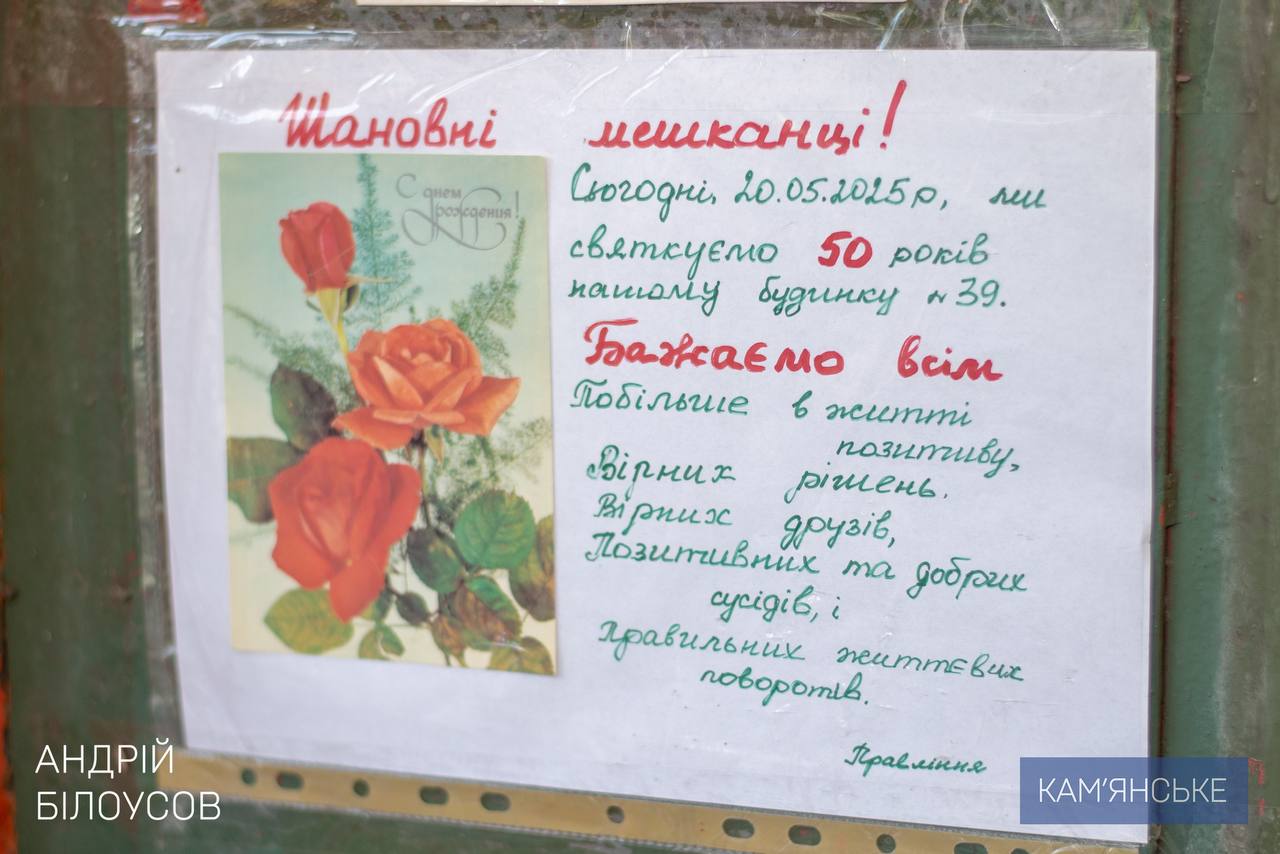 Шановні мешканці!
С днем
рождения!
Сьогодні, 20.05.2025р, ми
святкуємо 50 років
нашому будинку №39.
Бажаємо всім
Побільше в житті
позитиву,
Вірних рішень.
Вірних друзів,
Позитивних та добрих
сусідів, і
Правильних життєвих
поворотів.
Правління
АНДРІЙ
БІЛОУСОВ
КАМ'ЯНСЬКЕ